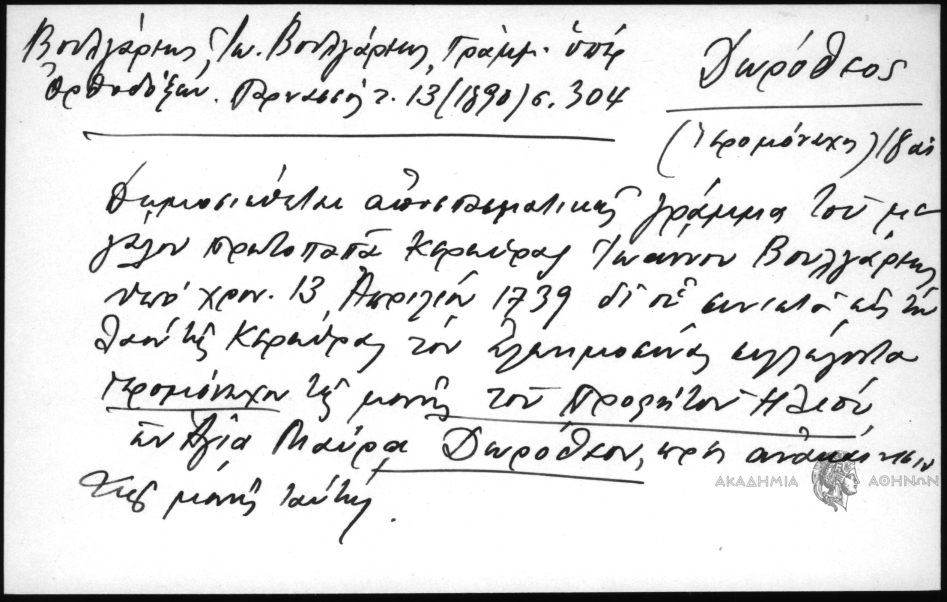 Βουλγάρης, Ἰω. Βουλγάρης, Γράμμ. ὑπὲρ
Ὀρθοδόξων. Παρνασσός τ. 13 (1890) σ. 304
Δωρόθεος
(Ἱερομόναχος) 18 αἰ
Δημοσιεύεται ἀποσπασματικῶς γράμμα τοῦ με
γάλου πρωτοπαπᾶ Κερκύρας Ἰωάννου Βουλγάρεως
ὑπὸ χρον. 13 Ἀπριλίου 1739 δι' οὗ συνιστᾷ εἰς τὸν
λαὸν τῆς Κερκύρας τὸν ἐλεημοσύνας συλλέγοντα
ἱερομόναχον τῆς μονῆς τοῦ Προφήτου Ἠλιοὺ
ἐν Ἁγίᾳ Μαύρᾳ Δωρόθεον, πρὸς ἀνακαίνισιν
τῆς μονῆς ταύτης.
ΑΚΑΔΗΜΙΑ ΑΘΗΝΩΝ